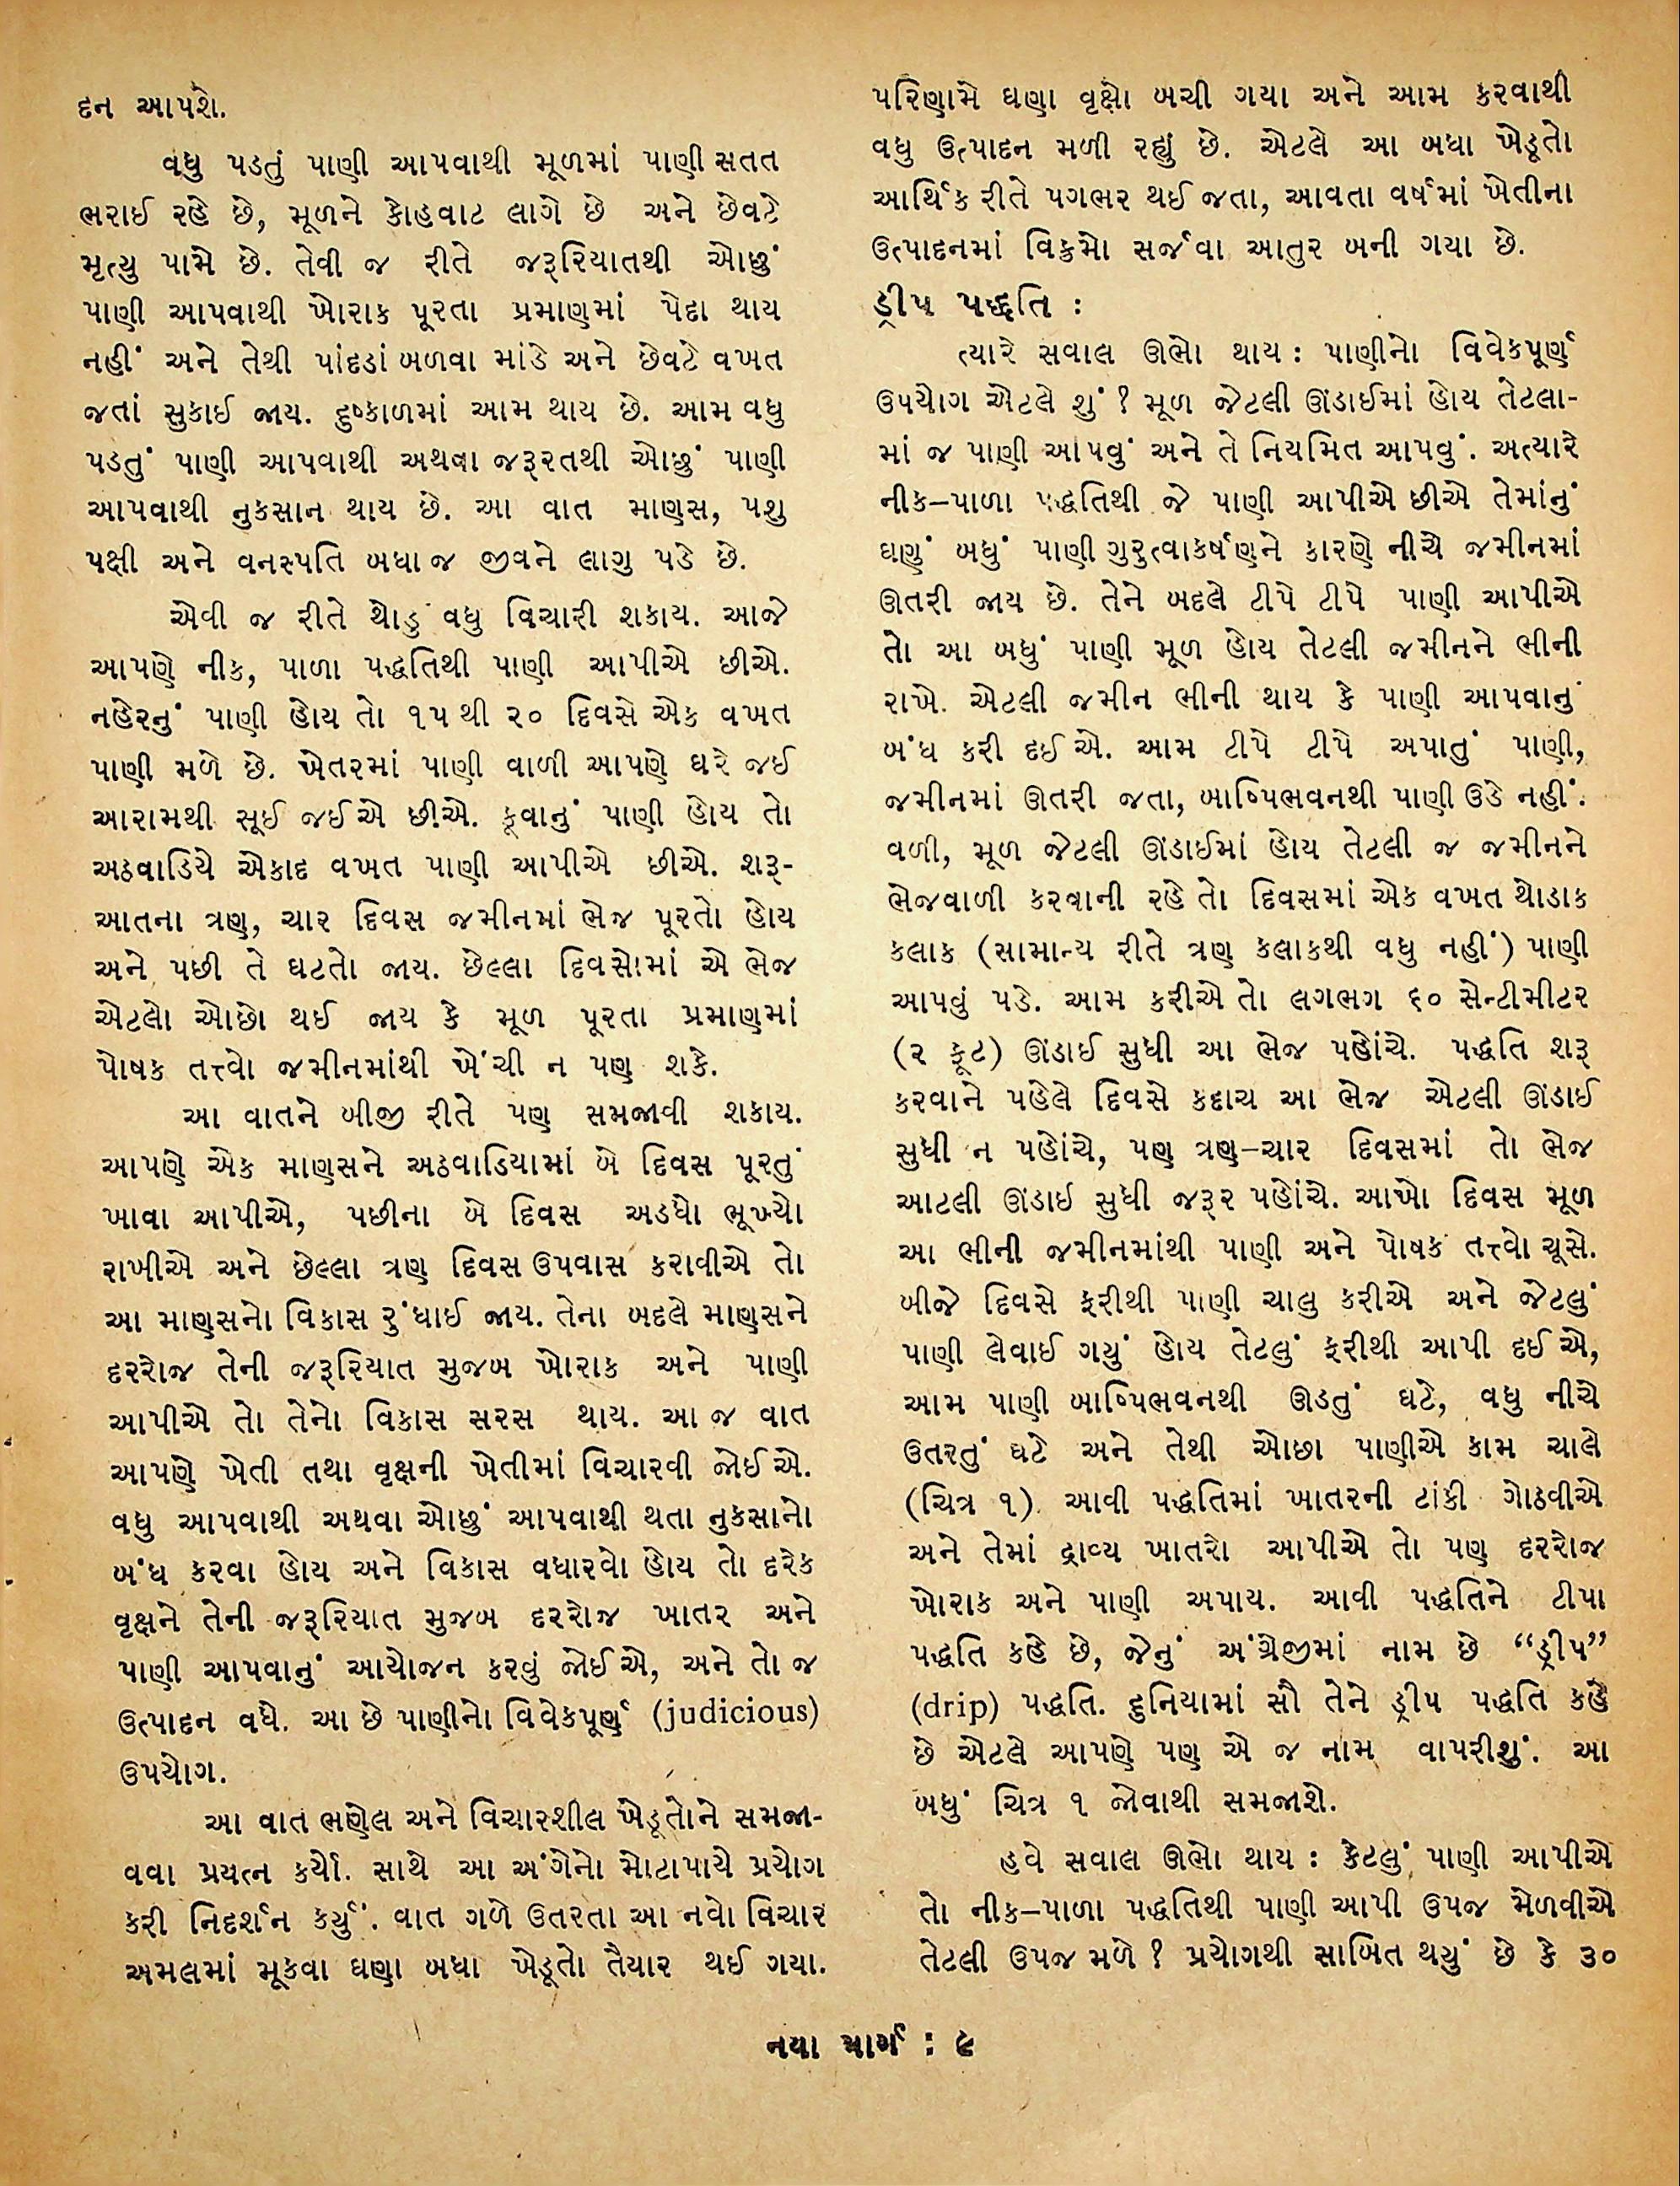 દન આપશે.
વધુ પડતું પાણી આપવાથી મૂળમાં પાણી સતત
ભરાઈ રહે છે, મૂળને કોહવાટ લાગે છે અને છેવટે
મૃત્યુ પામે છે. તેવી જ રીતે જરૂરિયાતથી ઓછું
પાણી આપવાથી ખોરાક પૂરતા પ્રમાણમાં પેદા થાય
નહીં અને તેથી પાંદડાં બળવા માંડે અને છેવટે વખત
જતાં સુકાઈ જાય. દુષ્કાળમાં આમ થાય છે. આમ વધુ
પડતું પાણી આપવાથી અથવા જરૂરતથી ઓછું પાણી
આપવાથી નુકસાન થાય છે. આ વાત માણસ, પશુ
પક્ષી અને વનસ્પતિ બધા જ જીવને લાગુ પડે છે.
એવી જ રીતે થોડું વધુ વિચારી શકાય. આજે
આપણે નીક, પાળા પદ્ધતિથી પાણી આપીએ છીએ.
નહેરનું પાણી હોય તો ૧૫ થી ૨૦ દિવસે એક વખત
પાણી મળે છે. ખેતરમાં પાણી વાળી આપણે ઘરે જઈ
આરામથી સૂઈ જઈએ છીએ. કૂવાનું પાણી હોય તો
અઠવાડિયે એકાદ વખત પાણી આપીએ છીએ. શરૂ-
આતના ત્રણ, ચાર દિવસ જમીનમાં ભેજ પૂરતો હોય
અને પછી તે ઘટતો જાય. છેલ્લા દિવસોમાં એ ભેજ
એટલો ઓછો થઈ જાય કે મૂળ પૂરતા પ્રમાણમાં
પોષક તત્ત્વો જમીનમાંથી ખેંચી ન પણ શકે.
આ વાતને બીજી રીતે પણ સમજાવી શકાય.
આપણે એક માણસને અઠવાડિયામાં બે દિવસ પૂરતું
ખાવા આપીએ, પછીના બે દિવસ અડધો ભૂખ્યો
રાખીએ અને છેલ્લા ત્રણ દિવસ ઉપવાસ કરાવીએ તો
આ માણસનો વિકાસ રુંધાઈ જાય. તેના બદલે માણસને
દરરોજ તેની જરૂરિયાત મુજબ ખોરાક અને પાણી
આપીએ તો તેનો વિકાસ સરસ થાય. આ જ વાત
આપણે ખેતી તથા વૃક્ષની ખેતીમાં વિચારવી જોઈએ.
વધુ આપવાથી અથવા ઓછું આપવાથી થતા નુકસાનો
બંધ કરવા હોય અને વિકાસ વધારવો હોય તો દરેક
વૃક્ષને તેની જરૂરિયાત મુજબ દરરોજ ખાતર અને
પાણી આપવાનું આયોજન કરવું જોઈએ, અને તો જ
ઉત્પાદન વધે. આ છે પાણીનો વિવેકપૂર્ણ (judicious)
ઉપયોગ.
આ વાત ભણેલ અને વિચારશીલ ખેડૂતોને સમજા-
વવા પ્રયત્ન કર્યો. સાથે આ અંગેનો મોટાપાયે પ્રયોગ
કરી નિદર્શન કર્યું. વાત ગળે ઉતરતા આ નવો વિચાર
અમલમાં મૂકવા ઘણા બધા ખેડૂતો તૈયાર થઈ ગયા.
પરિણામે ઘણા વૃક્ષો બચી ગયા અને આમ કરવાથી
વધુ ઉત્પાદન મળી રહ્યું છે. એટલે આ બધા ખેડૂતો
આર્થિક રીતે પગભર થઈ જતા, આવતા વર્ષમાં ખેતીના
ઉત્પાદનમાં વિક્રમો સર્જવા આતુર બની ગયા છે.
ડ્રીપ પદ્ધતિ :
ત્યારે સવાલ ઊભો થાય : પાણીનો વિવેકપૂર્ણ
ઉપયોગ એટલે શું ? મૂળ જેટલી ઊંડાઈમાં હોય તેટલા-
માં જ પાણી આપવું અને તે નિયમિત આપવું. અત્યારે
નીક–પાળા પદ્ધતિથી જે પાણી આપીએ છીએ તેમાંનું
ઘણું બધું પાણી ગુરુત્વાકર્ષણને કારણે નીચે જમીનમાં
ઊતરી જાય છે. તેને બદલે ટીપે ટીપે પાણી આપીએ
તો આ બધું પાણી મૂળ હોય તેટલી જમીનને ભીની
રાખે. એટલી જમીન ભીની થાય કે પાણી આપવાનું
બંધ કરી દઈએ. આમ ટીપે ટીપે અપાતું પાણી,
જમીનમાં ઊતરી જતા, બાષ્પિભવનથી પાણી ઉડે નહીં.
વળી, મૂળ જેટલી ઊંડાઈમાં હોય તેટલી જ જમીનને
ભેજવાળી કરવાની રહે તો દિવસમાં એક વખત થોડાક
કલાક (સામાન્ય રીતે ત્રણ કલાકથી વધુ નહીં) પાણી
આપવું પડે. આમ કરીએ તો લગભગ ૬૦ સેન્ટીમીટર
(૨ ફૂટ) ઊંડાઈ સુધી આ ભેજ પહોંચે. પદ્ધતિ શરૂ
કરવાને પહેલે દિવસે કદાચ આ ભેજ એટલી ઊંડાઈ
સુધી ન પહોંચે, પણ ત્રણ–ચાર દિવસમાં તો ભેજ
આટલી ઊંડાઈ સુધી જરૂર પહોંચે. આખો દિવસ મૂળ
આ ભીની જમીનમાંથી પાણી અને પોષક તત્ત્વો ચૂસે.
બીજે દિવસે ફરીથી પાણી ચાલુ કરીએ અને જેટલું
પાણી લેવાઈ ગયું હોય તેટલું ફરીથી આપી દઈએ,
આમ પાણી બાષ્પિભવનથી ઊડતું ઘટે, વધુ નીચે
ઉતરતું ઘટે અને તેથી ઓછા પાણીએ કામ ચાલે
(ચિત્ર ૧). આવી પદ્ધતિમાં ખાતરની ટાંકી ગોઠવીએ
અને તેમાં દ્રાવ્ય ખાતરો આપીએ તો પણ દરરોજ
ખોરાક અને પાણી અપાય. આવી પદ્ધતિને ટીપા
પદ્ધતિ કહે છે, જેનું અંગ્રેજીમાં નામ છે “ડ્રીપ”
(drip) પદ્ધતિ. દુનિયામાં સૌ તેને ડ્રીપ પદ્ધતિ કહે
છે એટલે આપણે પણ એ જ નામ વાપરીશું. આ
બધું ચિત્ર ૧ જોવાથી સમજાશે.
હવે સવાલ ઊભો થાય : કેટલું પાણી આપીએ
તો નીક–પાળા પદ્ધતિથી પાણી આપી ઉપજ મેળવીએ
તેટલી ઉપજ મળે ? પ્રયોગથી સાબિત થયું છે કે ૩૦
નયા માર્ગ : ૯